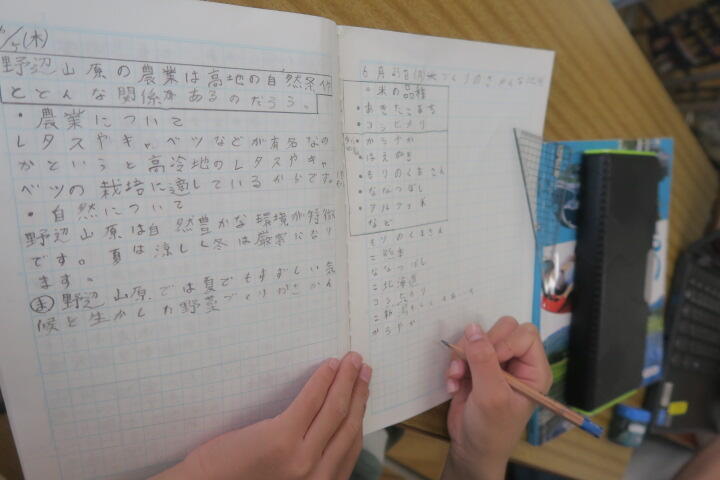 (木)
野辺山原の農業は高地の自然条件
とどんな関係があるのだろう。
・農業について
レタスやキャベツなどが有名なの
かというと高冷地のレタスやキャ
ベツの栽培に適しているからです。
・自然について
野辺山原は自然豊かな環境が特徴
です。夏は涼しく冬は厳寒になり
ます。
ま 野辺山原では夏でもすずしい気
候を生かした野菜づくりがさかん
6月
米づくりのさかんな
・米の品種
・あきたこまち
・コシヒカリ
・かろやか
・はえぬき
・もりのくまさん
・ななつぼし
・
など
もりのくまさん
ななつぼし
北海道
コシヒカリ
かろやか